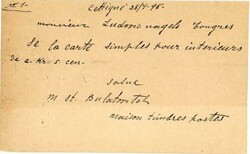 Cettigné 28/1-96
monsieur Ludovic nagels Tongres
De la carte simples pour interieurs
de 2 Kr. 5 cen.
Salue
M St. Bulatovitch
maison timbres postes